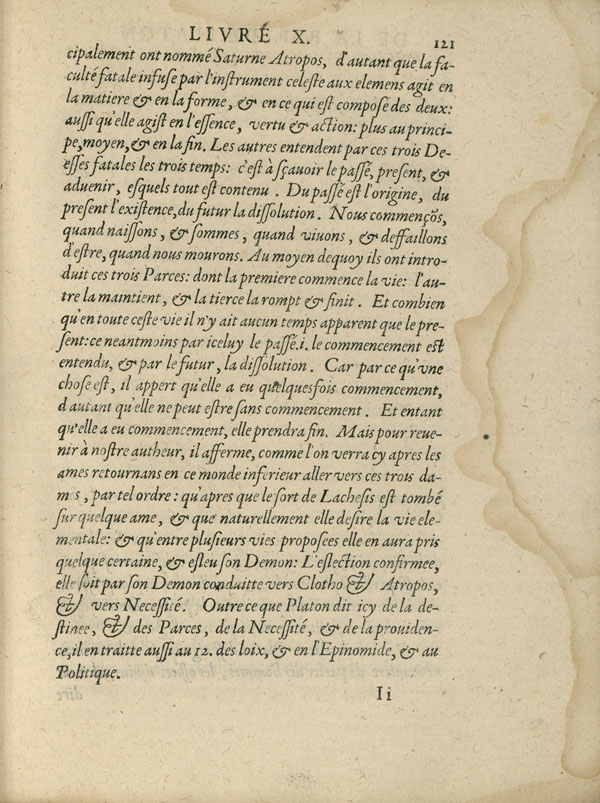 LIVRÉ X. 121
cipalement ont nommé Saturne Atropos, d'autant que la fa-
culté fatale infuse par l'instrument celeste aux elemens agit en
la matiere & en la forme, & en ce qui est compose des deux:
aussi qu'elle agist en l'essence, vertu & action: plus au princi-
pe, moyen, & en la fin. Les autres entendent par ces trois De-
esses fatales les trois temps: c'est à sçavoir le passé, present, &
advenir, esquels tout est contenu. Du passé est l'origine, du
present l'existence, du futur la dissolution. Nous commençõs,
quand naissons, & sommes, quand vivons, & deffaillons
d'estre, quand nous mourons. Au moyen dequoy ils ont intro-
duit ces trois Parces: dont la premiere commence la vie: l'au-
tre la maintient, & la tierce la rompt & finit. Et combien
qu'en toute ceste vie il n'y ait aucun temps apparent que le pre-
sent: ce neantmoins par iceluy le passé .i. le commencement est
entendu, & par le futur, la dissolution. Car par ce qu'vne
chose est, il appert qu'elle a eu quelquesfois commencement,
d'autant qu'elle ne peut estre sans commencement. Et entant
qu'elle a eu commencement, elle prendra fin. Mais pour reue-
nir à nostre autheur, il afferme, comme l'on verra cy apres les
ames retournans en ce monde inferieur aller vers ces trois da-
mes, par tel ordre: qu'apres que le sort de Lachesis est tombé
sur quelque ame, & que naturellement elle desire la vie ele-
mentale: & qu'entre plusieurs vies proposees elle en aura pris
quelque certaine, & esleu son Demon: L'eslection confirmee,
elle soit par son Demon conduitte vers Clotho & Atropos,
& vers Necessité. Outre ce que Platon dit icy de la de-
stinee, & des Parces, de la Necessité, & de la prouiden-
ce, il en traitte aussi au 12. des loix, & en l'Epinomide, & au
Politique.
Ii